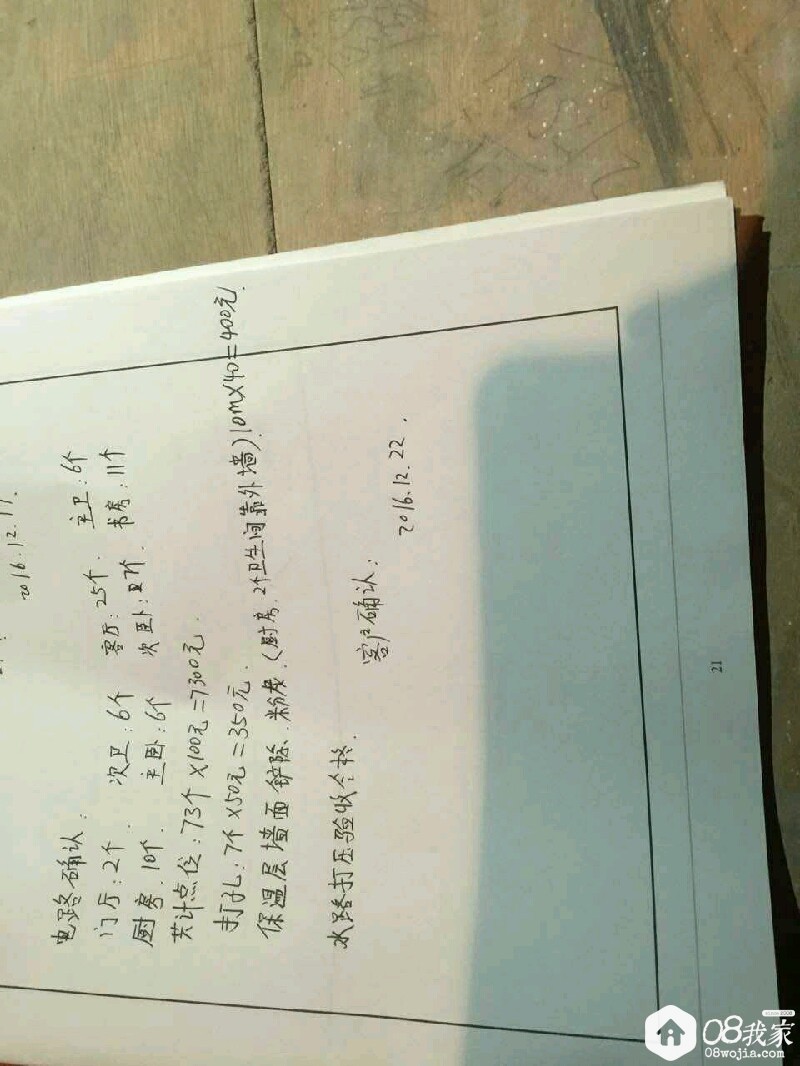 2016.12.17.
电路确认：
门厅：2个. 次卫：6个 客厅：25个. 主卫：6个
厨房：10个. 主卧：6个 次卧：7个. 书房：11个
共计点位：73个×100元=7300元.
打孔：7个×50元=350元.
保温层墙面铲除、粉灰.（厨房.2个卫生间靠外墙）10m×40=400元.
水路打压验收合格.
客户确认：
2016.12.22.
21
08我家
08wojia.com